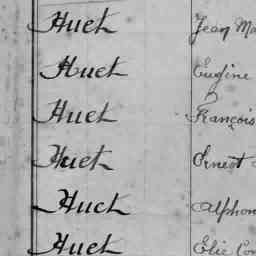 Huet Jean
Huet Eugène
Huet François
Huet Ernest
Huet
Huet Elie